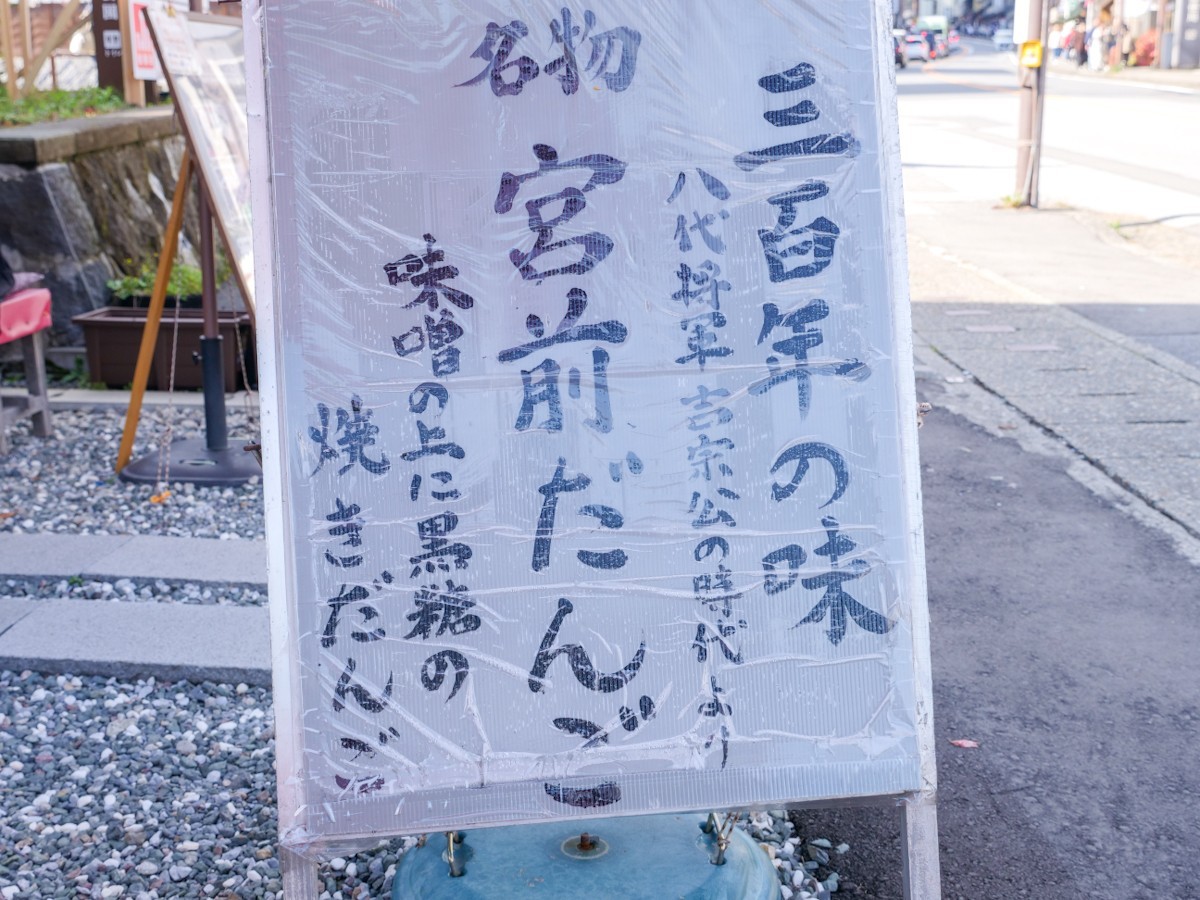 三百年の味
八代将軍吉宗公の時代より
名物
宮前だんご
味噌の上に黒糖の
焼きだんご